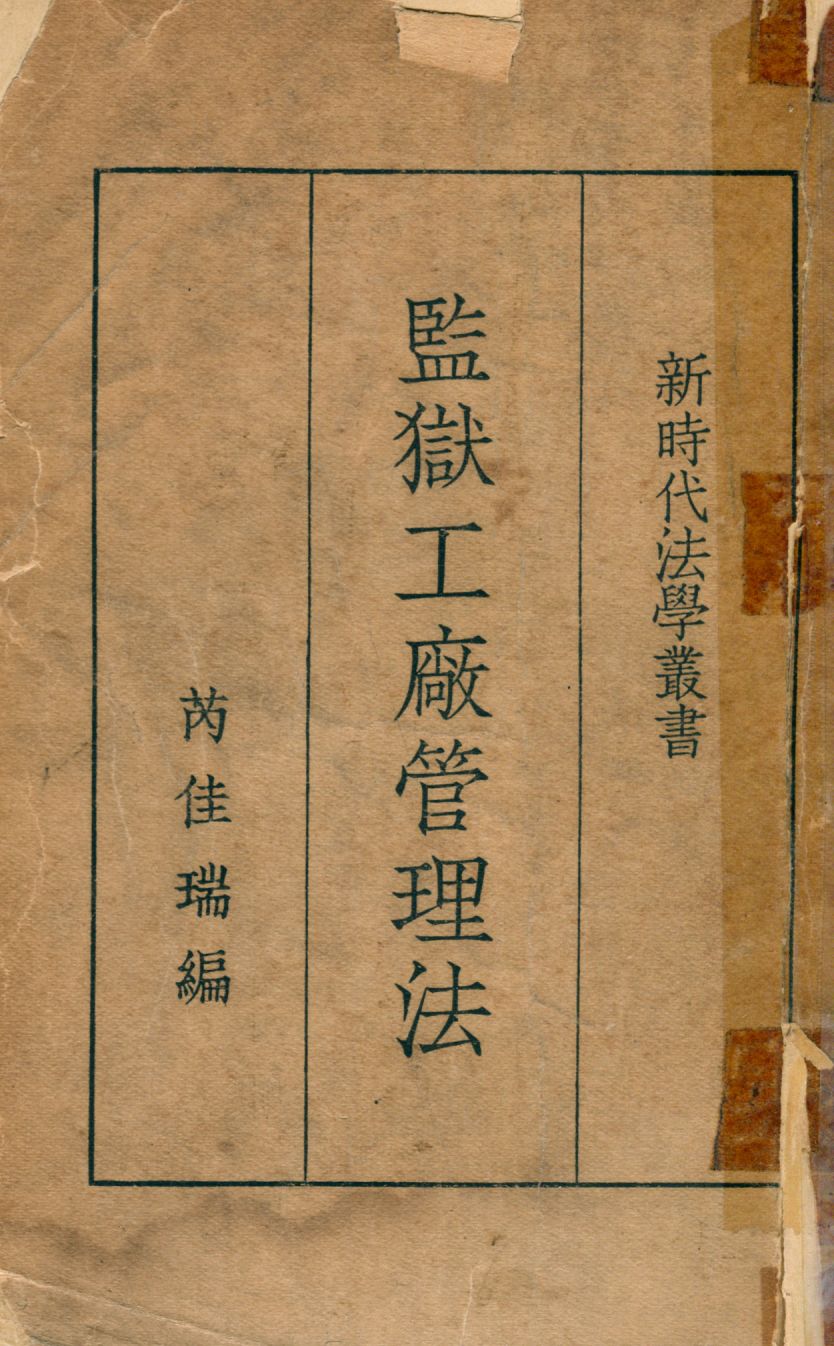 新時代法學叢書
監獄工廠管理法
芮佳瑞編